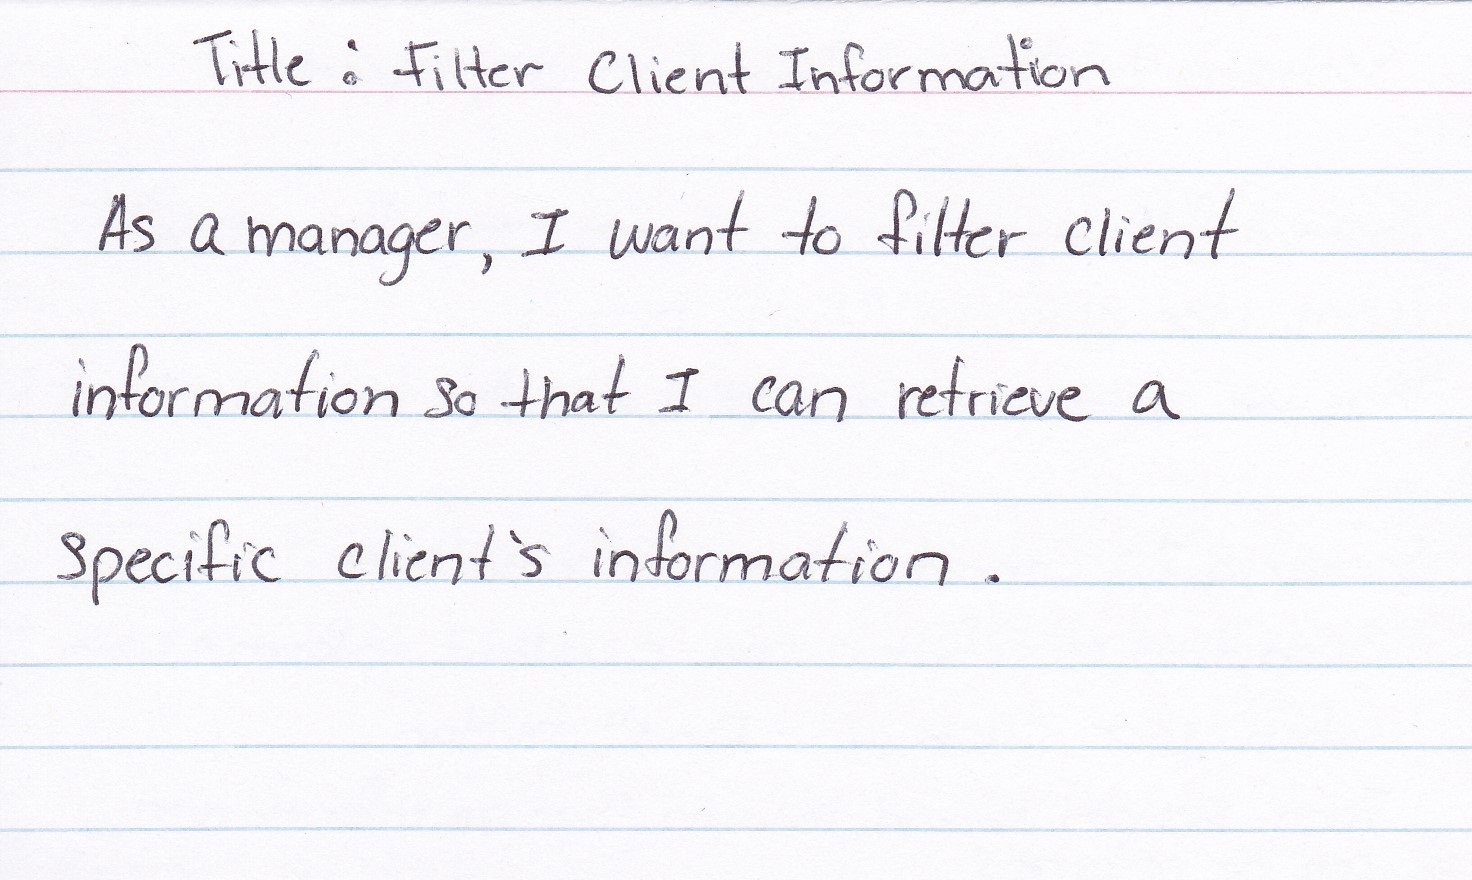 Title: Filter Client Information
As a manager, I want to filter client
information so that I can retrieve a
specific client's information.